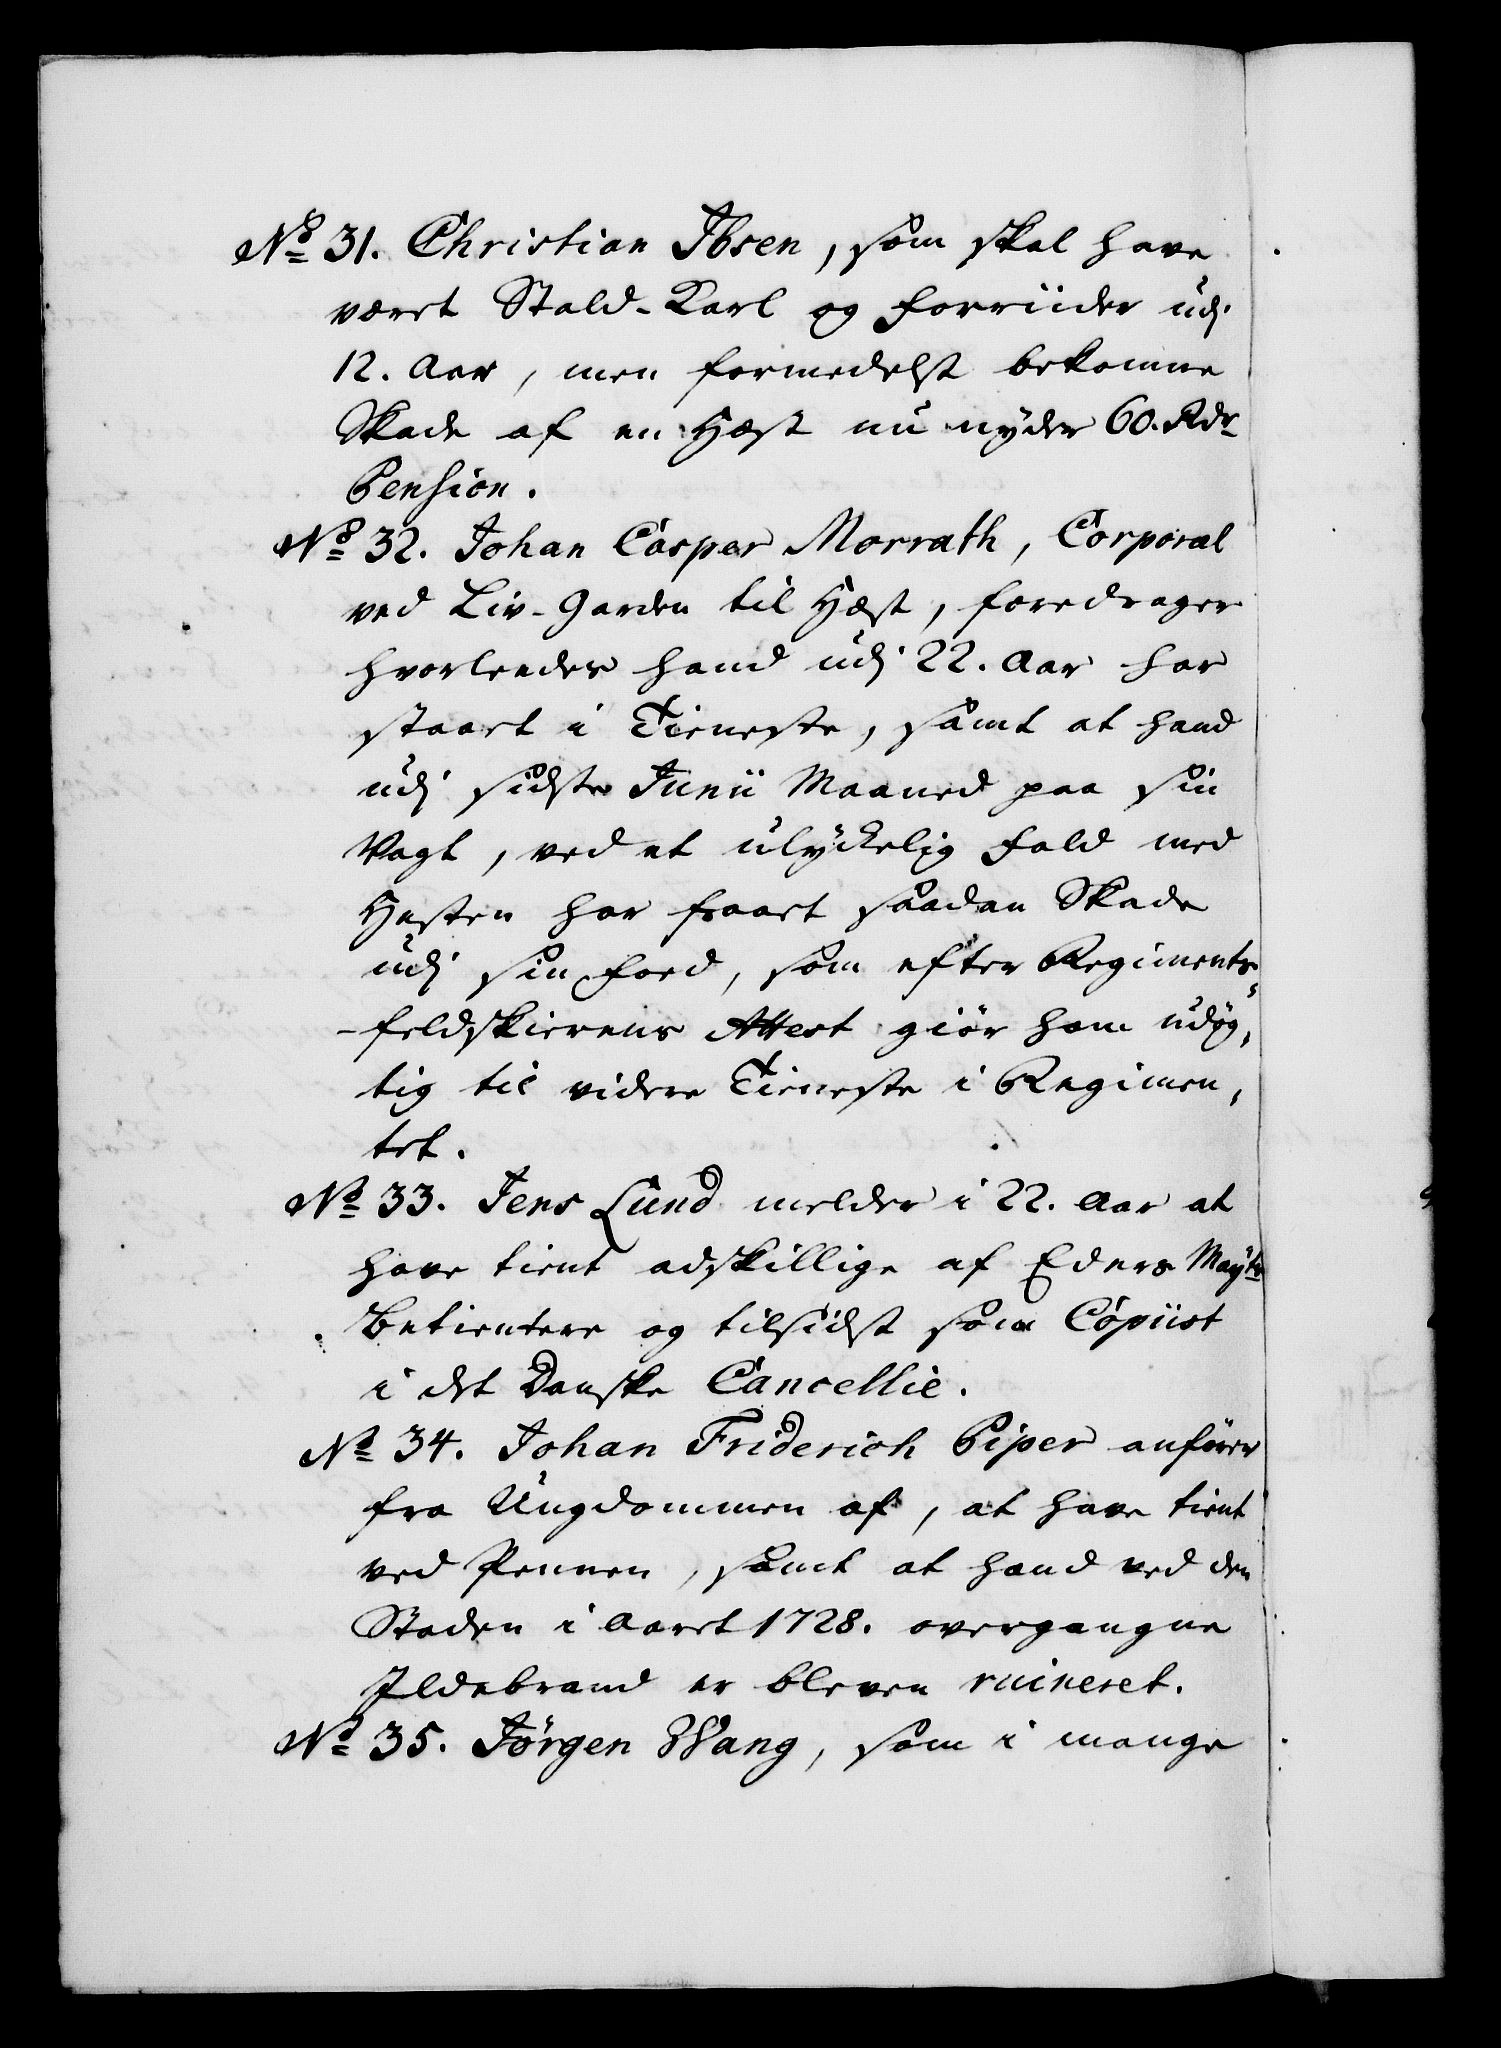 No 31. Christian Ibsen, som skal have
veret Stald-Karl og Forriider udj
12. Aar, men formedelst bekomne
Skade af en Hest nu nyder 60. Rdr
Pension.
No 32. Johan Casper Morrath, Corporal
ved Liv-Garden til Hest, foredrager
hvorleedes hand udj 22. Aar har
staaet i Tieneste, samt at hand
udj sidste Junii Maaned paa sin
Vagt, ved et ulyckelig Fald med
Hesten har faaet saadan Skade
udj sin Foed, som efter Regiments-
-feldskierens Attest giör ham udög,
tig til videre Tieneste i Regimen,
tet.
No 33. Jens Lund melder i 22. Aar at
have tient adskillige af Eders Mayts
Betientere og tilsidst som Copiist
i det Danske Cancellie.
No 34. Johan Friderich Piper anförer
fra Ungdommen af, at have tient
ved Pennen, samt at hand ved den
Staden i Aaret 1728. overgangne
Ildebrand er bleven ruineret.
No 35. Jörgen Wang, som i mange